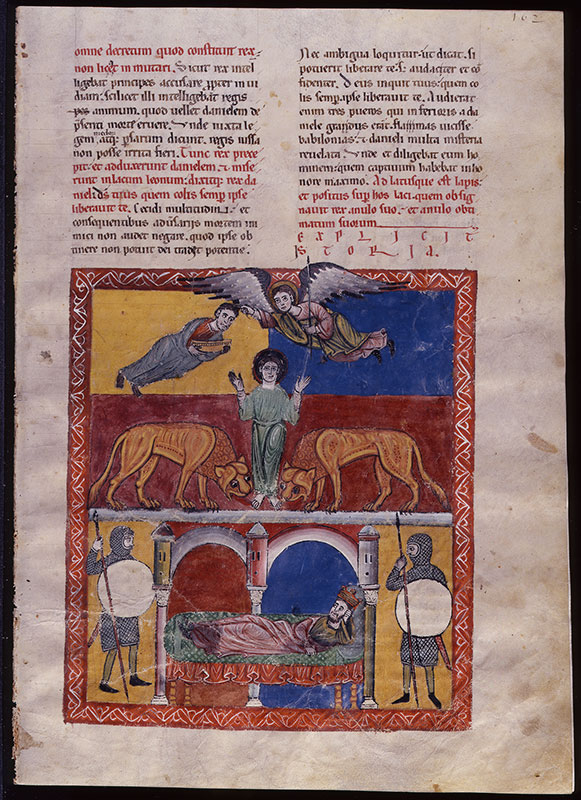 162
omne decretum quod constituit rex
non licet mutari. Sicut rex intel
ligebat principes accusare propter in ui
diam. scilicet illi intelligebat regis
animum. quod uellet danielem de
psenti morte eruere. Vnde iuxta le
gem atq; psarum dicunt. regis iussa
non posse irrita fieri. Tunc rex prece
pit. et adduxerunt danielem. et mise
runt in lacum leonum. dixitq; rex da
nieli. ds tuus quem colis semp ipse
liberauit te. Cedit multitudini. et
consequentibus adusariis mortem ini
mici non audet negare. quod ipse ob
tinere non potuit dei tradet potentie.
Nec ambigua loquitur. ut dicat. si
potuerit liberare te. S; audacter et co
fidenter. Deus inquit tuus. quem co
lis semp. ipse liberauit te. Audierat
enim tres pueros qui inferioris a da
niele gradus erat. flammas uicisse
babilonias. et danieli multa misteria
reuelata. Vnde et diligebat eum ho
minem. quem captiuum habebat in ho
nore maximo. Adlatusque est lapis.
et positus sup hos laci. quem obsig
nauit rex anulo suo. et anulo obti
matum suorum
EXPLICIT
STORIA.